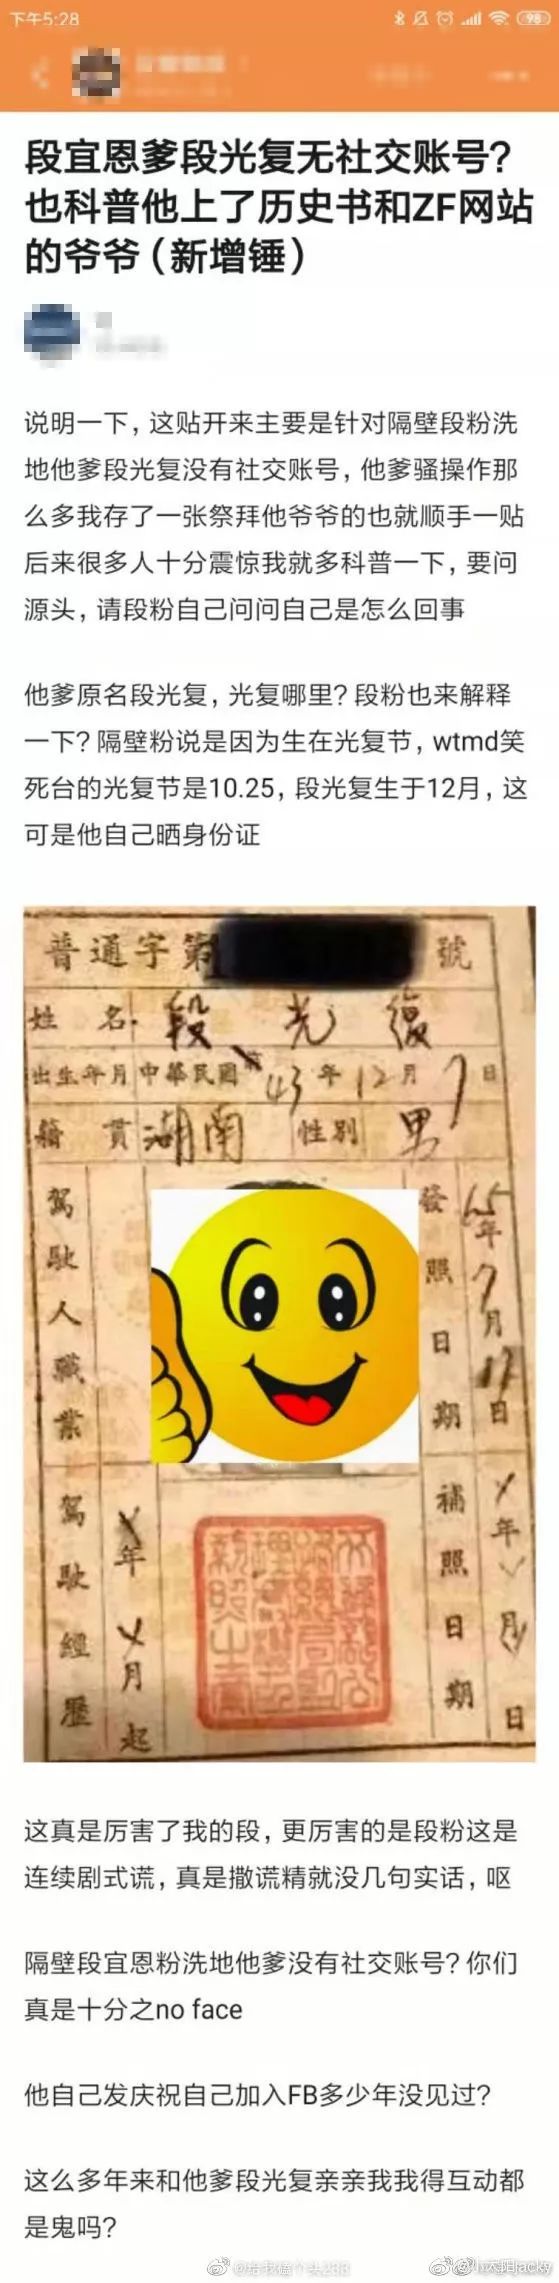 下午5:28
98
段宜恩爹段光复无社交账号?
也科普他上了历史书和ZF网站
的爷爷（新增锤）
说明一下，这贴开来主要是针对隔壁段粉洗
地他爹段光复没有社交账号，他爹骚操作那
么多我存了一张祭拜他爷爷的也就顺手一贴
后来很多人十分震惊我就多科普一下，要问
源头，请段粉自己问问自己是怎么回事
他爹原名段光复，光复哪里？段粉也来解释
一下？隔壁粉说是因为生在光复节，wtmd笑
死台的光复节是10.25，段光复生于12月，这
可是他自己晒身份证
普通字第 號
姓名 段光復
出生年月 中華民國 43年12月7日
籍貫 湖南 性別 男
駕駛人職業
發照日期 65年7月17日
駕駛經歷 年 月起
補照日期 年 月 日
这真是厉害了我的段，更厉害的是段粉这是
连续剧式谎，真是撒谎精就没几句实话，呕
隔壁段宜恩粉洗地他爹没有社交账号？你们
真是十分之no face
他自己发庆祝自己加入FB多少年没见过？
这么多年来和他爹段光复亲亲我我得互动都
是鬼吗？
@给我磕个头233